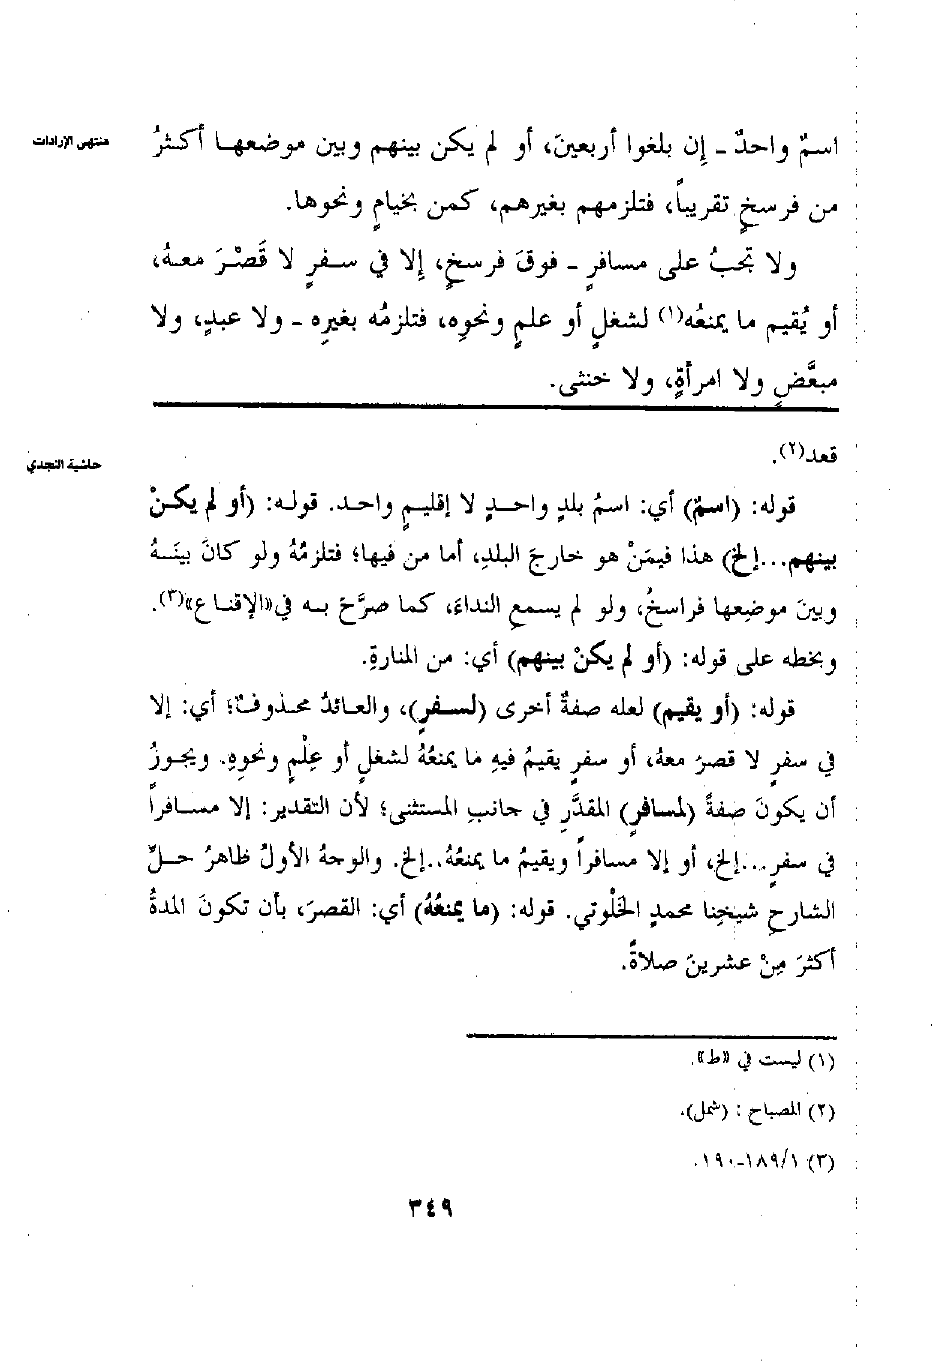 منتهى الإرادات
اسمٌ واحدٌ ـ إن بلغوا أربعينَ، أو لم يكن بينهم وبين موضعها أكثرُ
من فرسخٍ تقريباً، فتلزمهم بغيرهم، كمن بخيامٍ ونحوها.
ولا تجبُ على مسافرٍ ـ فوقَ فرسخٍ، إلا في سفرٍ لا قَصْرَ معهُ،
أو يُقيم ما يمنعُه(١) لشغلٍ أو علمٍ ونحوِه، فتلزمُه بغيرِه ـ ولا عبدٍ، ولا
مبعَّضٍ ولا امرأةٍ، ولا خنثى.
حاشية النجدي
قعد(٢).
قوله: (اسمٌ) أي: اسمُ بلدٍ واحدٍ لا إقليمٍ واحد. قوله: (أو لم يكنْ
بينهم...إلخ) هذا فيمَنْ هو خارجَ البلدِ، أما من فيها؛ فتلزمُهُ ولو كانَ بينَهُ
وبينَ موضعِها فراسخُ، ولو لم يسمعِ النداءَ، كما صرَّحَ به في«الإقناع»(٣).
وبخطه على قوله: (أو لم يكنْ بينهم) أي: من المنارةِ.
قوله: (أو يقيم) لعله صفةٌ أخرى (لسفرٍ)، والعائدُ محذوفٌ؛ أي: إلا
في سفرٍ لا قصرَ معهُ، أو سفرٍ يقيمُ فيهِ ما يمنعُهُ لشغلٍ أو عِلْمٍ ونحوِهِ. ويجوزُ
أن يكونَ صفةً (لمسافرٍ) المقدَّرِ في جانبِ المستثنى؛ لأن التقدير: إلا مسافراً
في سفرٍ...إلخ، أو إلا مسافراً ويقيمُ ما يمنعُهُ..إلخ. والوجهُ الأولُ ظاهرُ حلِّ
الشارحِ شيخِنا محمدٍ الخَلْوتي. قوله: (ما يمنعُهُ) أي: القصرَ، بأن تكونَ المدةُ
أكثرَ مِنْ عشرينَ صلاةً.
(١) ليست في «ط».
(٢) المصباح : (شمل).
(٣) ١/ ١٨٩-١٩٠.
٣٤٩